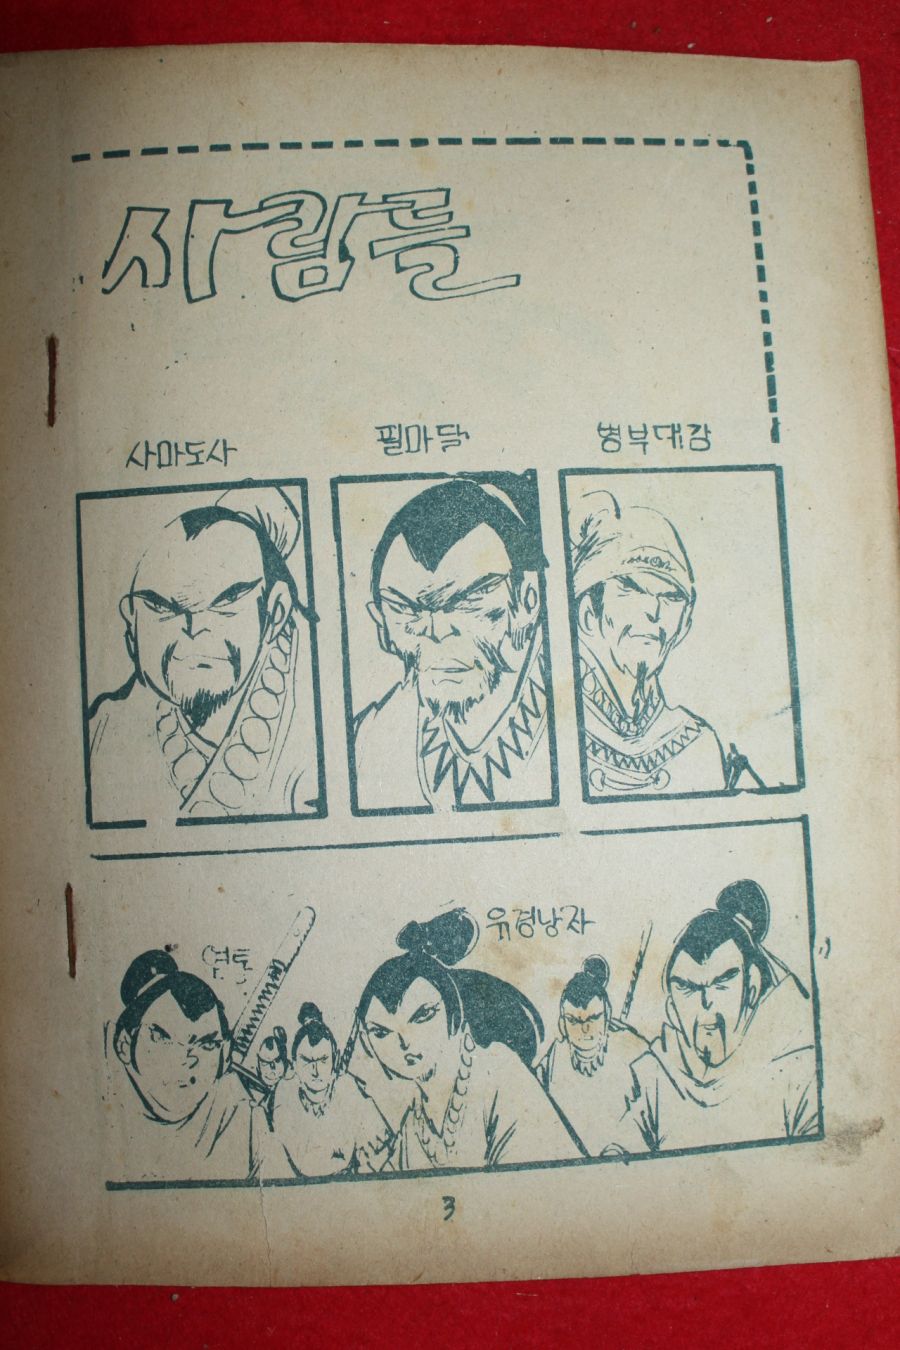 사람들
사마도사
필마달
병부대감
유경낭자
연토
3